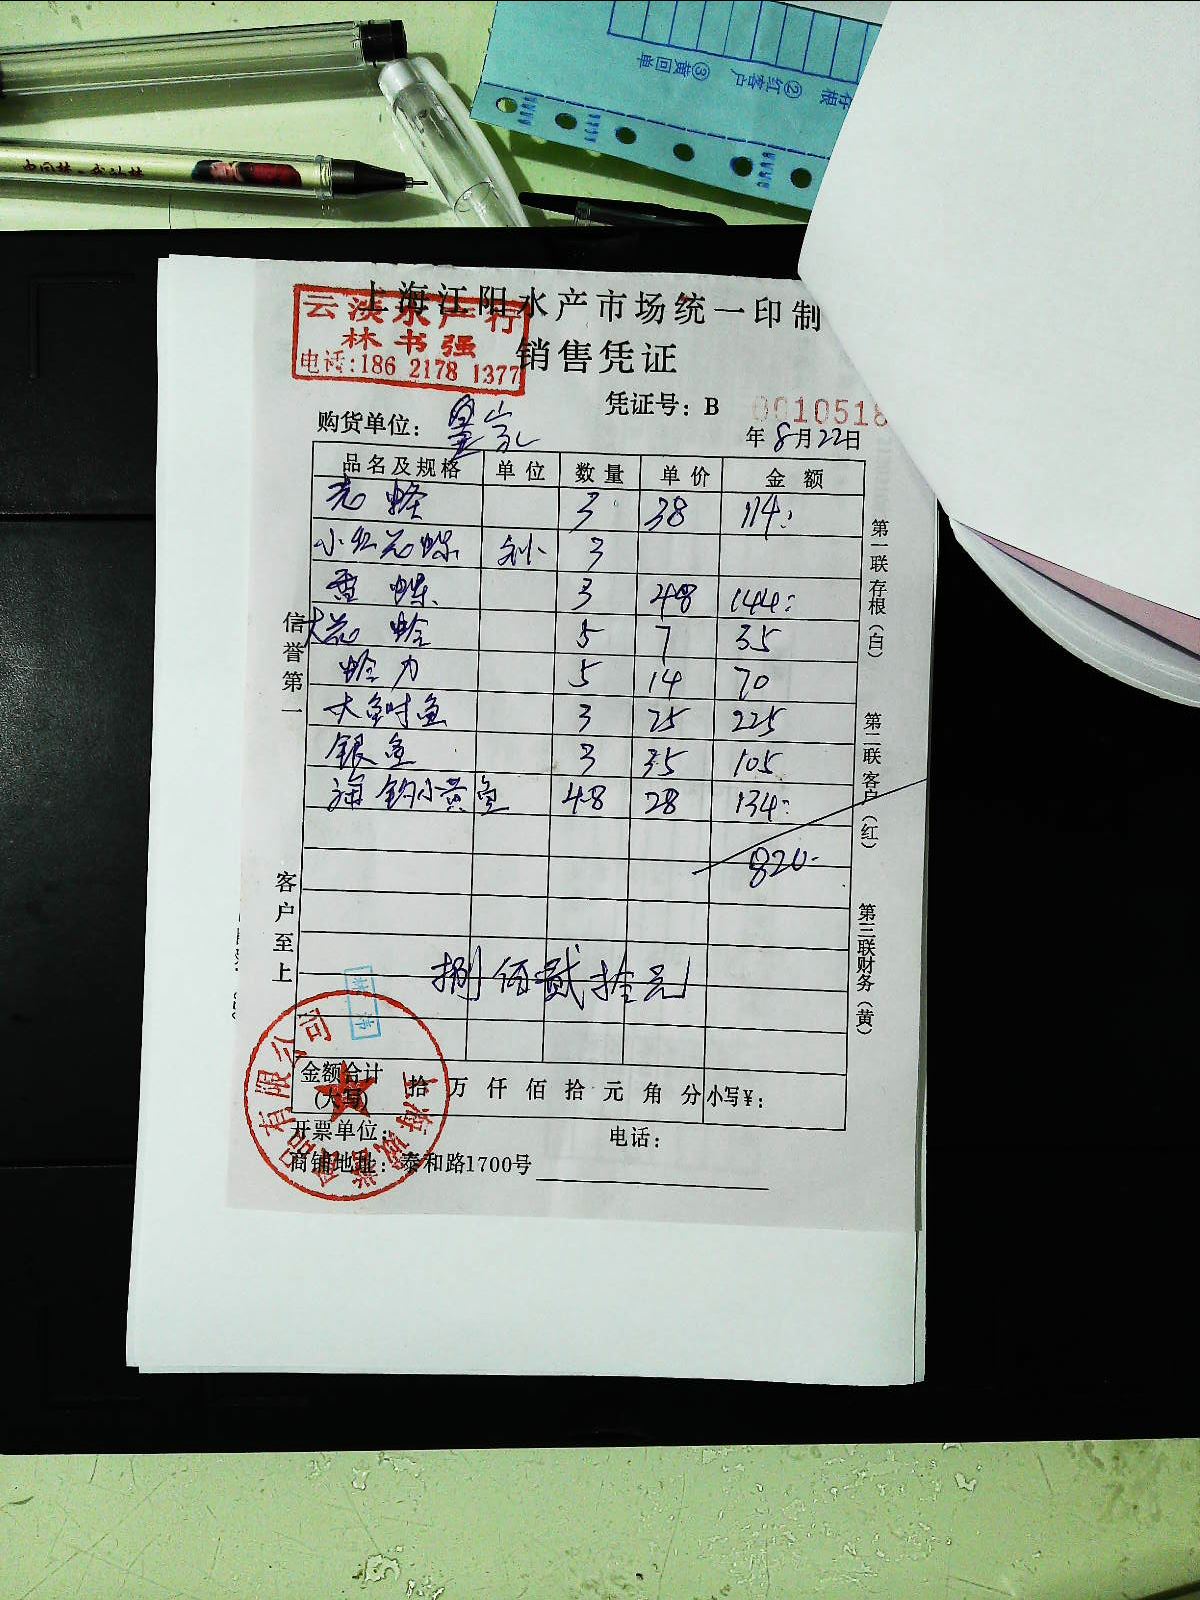 ③黄回单
②红客户
存根
中国梦·我的梦
上海江阳水产市场统一印制
云淡水产行
林书强
电话:186 2178 1377
销售凭证
凭证号：B 0010518
购货单位：
年8月22日
品名及规格 单位 数量 单价 金额
3 38 114:
小红 3
3 48 144:
大 蛤 5 7 35
蛤力 5 14 70
大鲥鱼 3 75 225
银鱼 3 35 105
海钓小黄鱼 4.8 28 134:
820-
捌佰贰拾元
金额合计(大写) 拾万仟佰拾元角分 小写¥：
开票单位： 电话：
商铺地址：泰和路1700号
信誉第一
客户至上
第一联存根（白）
第二联客户（红）
第三联财务（黄）